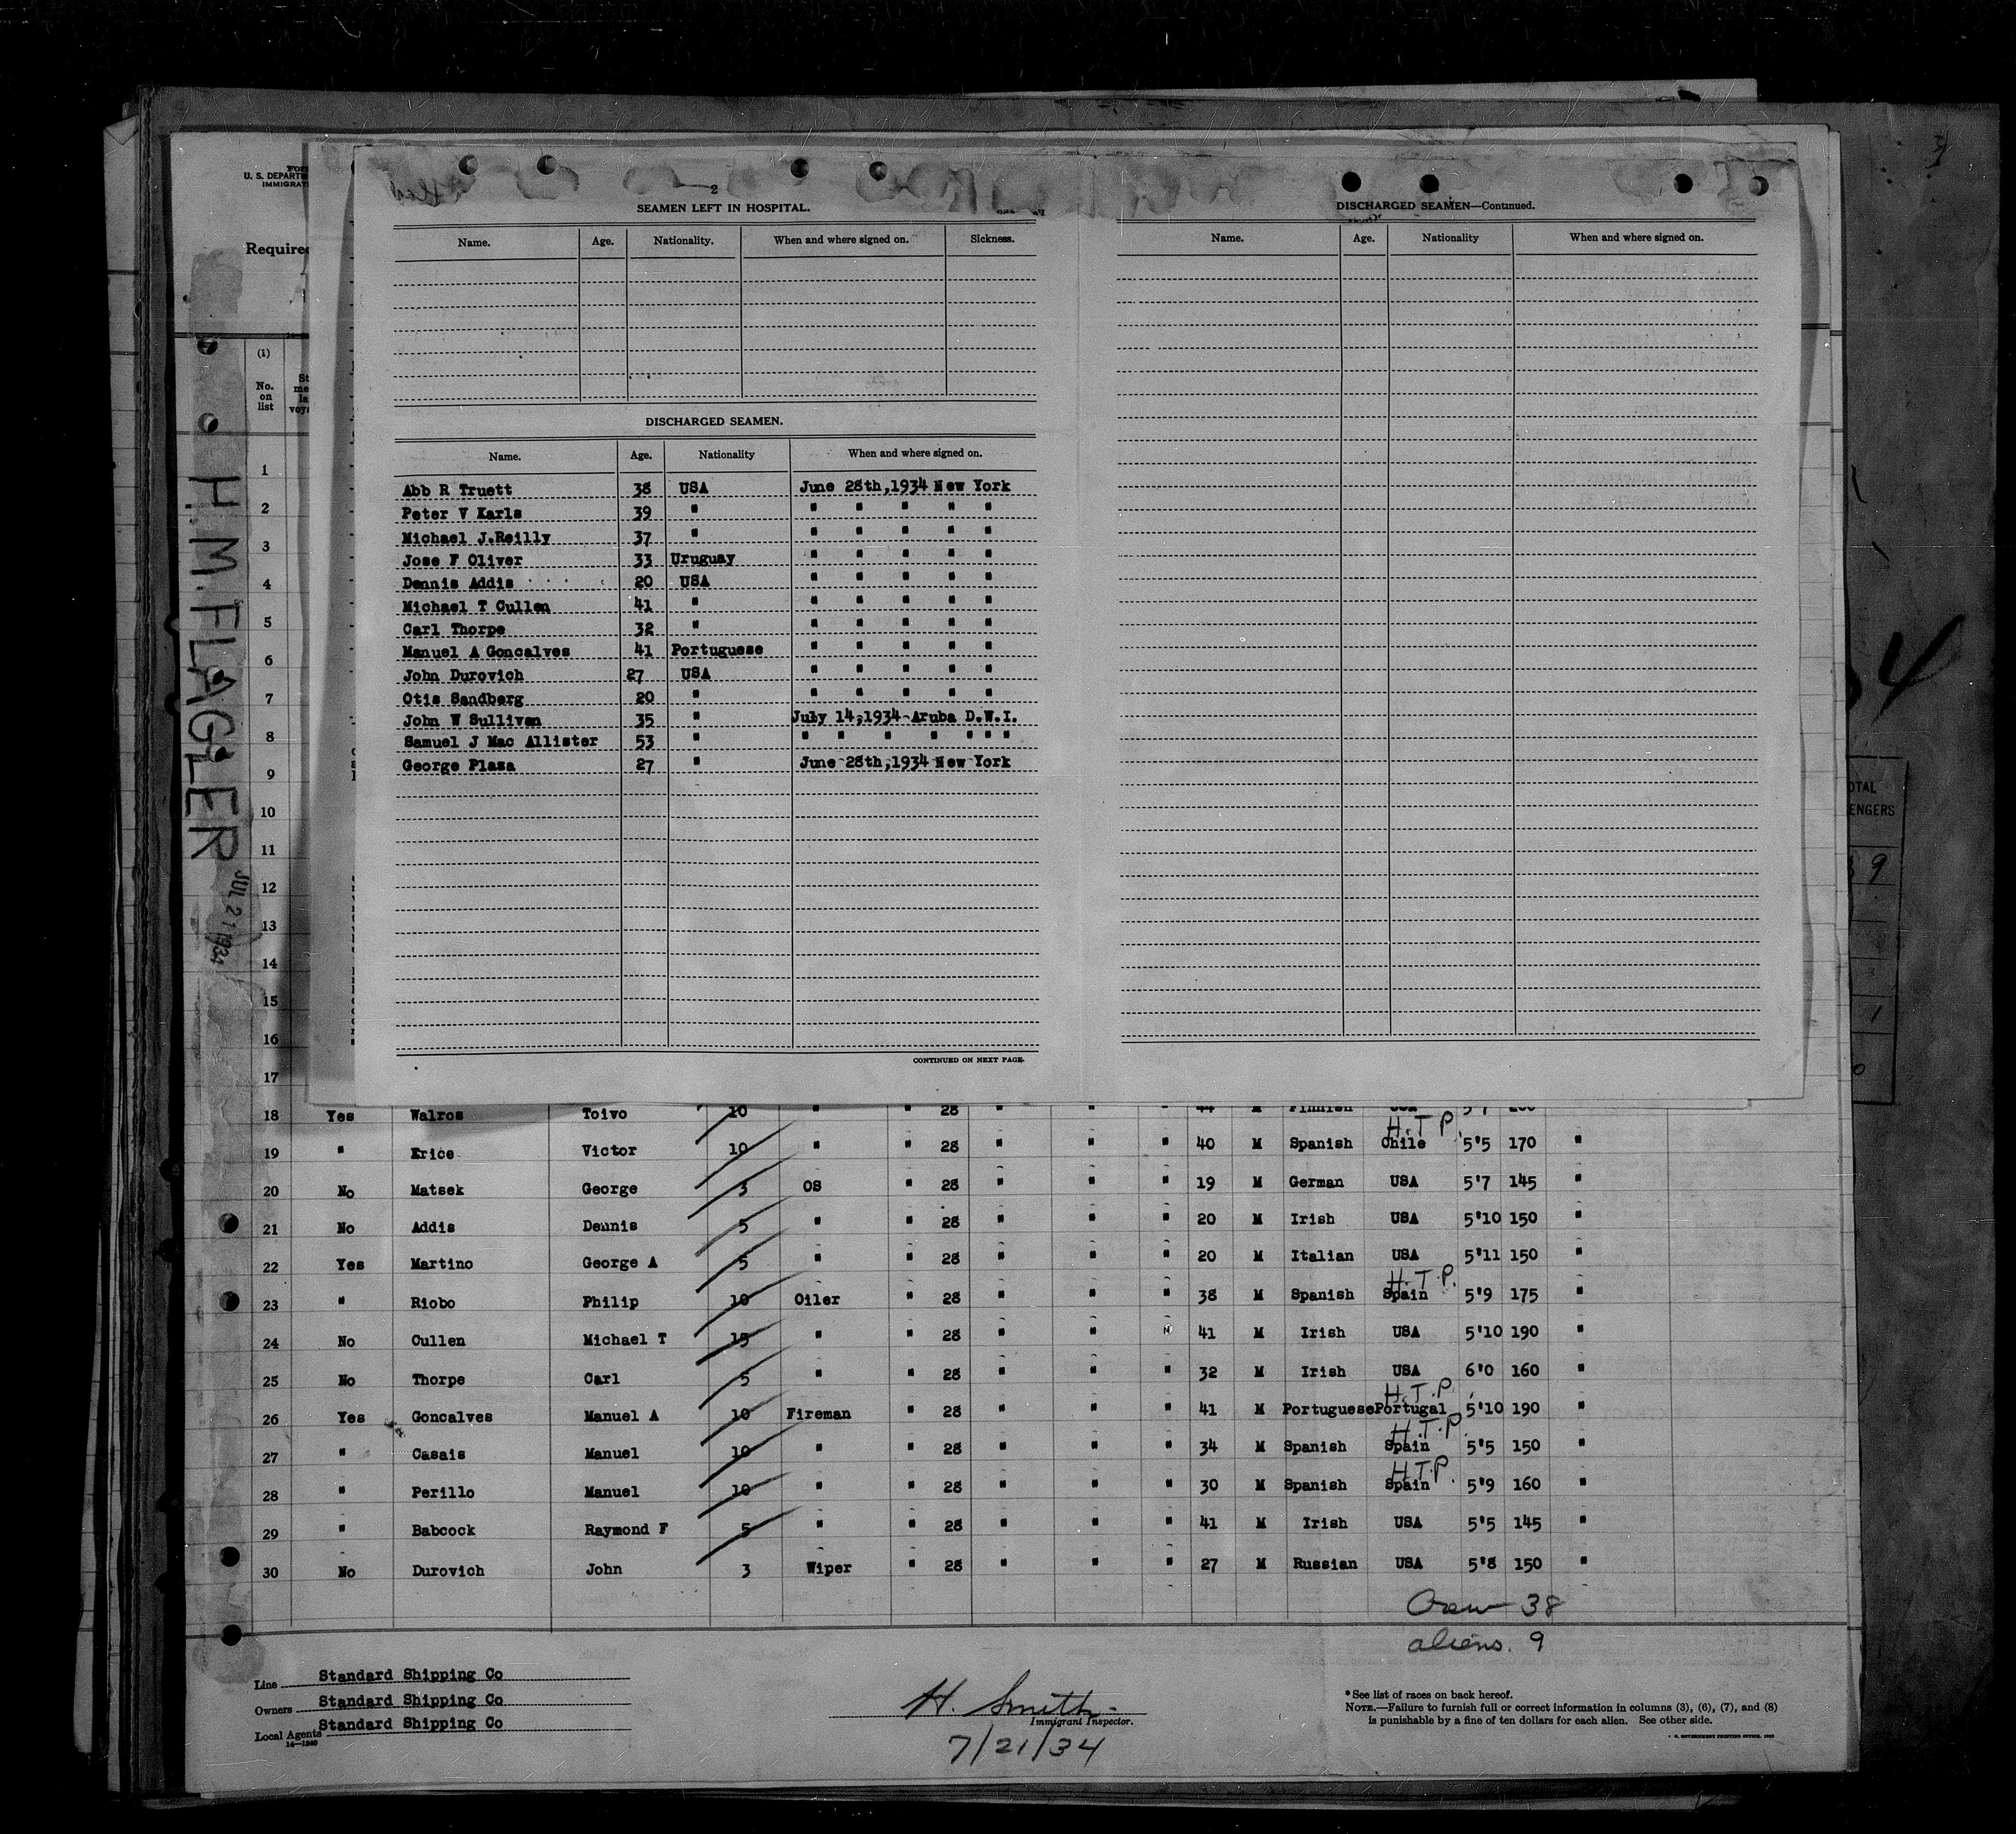 U. S. DEPARTM
IMMIGRAT
Required
(1)
No.
on
list
H.M.FLAGLER
JUL 21 1934
2
SEAMEN LEFT IN HOSPITAL.
Name. Age. Nationality. When and where signed on. Sickness.
DISCHARGED SEAMEN.
Name. Age. Nationality When and where signed on.
Abb R Truett 38 USA June 28th,1934 New York
Peter V Karls 39 " " " " " "
Michael J.Reilly 37 " " " " " "
Jose F Oliver 33 Uruguay " " " " "
Dennis Addis 20 USA " " " " "
Michael T Cullen 41 " " " " " "
Carl Thorpe 32 " " " " " "
Manuel A Goncalves 41 Portuguese " " " " "
John Durovich 27 USA " " " " "
Otis Sandberg 20 " " " " " "
John W Sullivan 35 " July 14,1934 Aruba D.W.I.
Samuel J Mac Allister 53 " " " " " " " "
George Plaza 27 " June 28th,1934 New York
CONTINUED ON NEXT PAGE.
DISCHARGED SEAMEN—Continued.
Name. Age. Nationality When and where signed on.
1
2
3
4
5
6
7
8
9
10
11
12
13
14
15
16
17
18 Yes Walros Toivo 10 " " 28 " " " 44 M Finnish USA
19 " Erice Victor 10 " " 28 " " " 40 M Spanish Chile H.T.P. 5'5 170 "
20 No Matsek George 3 OS " 28 " " " 19 M German USA 5'7 145 "
21 No Addis Dennis 5 " " 28 " " " 20 M Irish USA 5'10 150 "
22 Yes Martino George A 5 " " 28 " " " 20 M Italian USA 5'11 150 "
23 " Riobo Philip 10 Oiler " 28 " " " 38 M Spanish Spain H.T.P. 5'9 175 "
24 No Cullen Michael T 15 " " 28 " " " 41 M Irish USA 5'10 190 "
25 No Thorpe Carl 5 " " 28 " " " 32 M Irish USA 6'0 160 "
26 Yes Goncalves Manuel A 10 Fireman " 28 " " " 41 M Portuguese Portugal H.T.P. 5'10 190 "
27 " Casais Manuel 10 " " 28 " " " 34 M Spanish Spain H.T.P. 5'5 150 "
28 " Perillo Manuel 10 " " 28 " " " 30 M Spanish Spain H.T.P. 5'9 160 "
29 " Babcock Raymond F 5 " " 28 " " " 41 M Irish USA 5'5 145 "
30 No Durovich John 3 Wiper " 28 " " " 27 M Russian USA 5'8 150 "
Crew 38
aliens. 9
Line Standard Shipping Co
Owners Standard Shipping Co
Local Agents Standard Shipping Co
14—1240
H. Smith
Immigrant Inspector.
7/21/34
* See list of races on back hereof.
NOTE.—Failure to furnish full or correct information in columns (3), (6), (7), and (8)
is punishable by a fine of ten dollars for each alien. See other side.